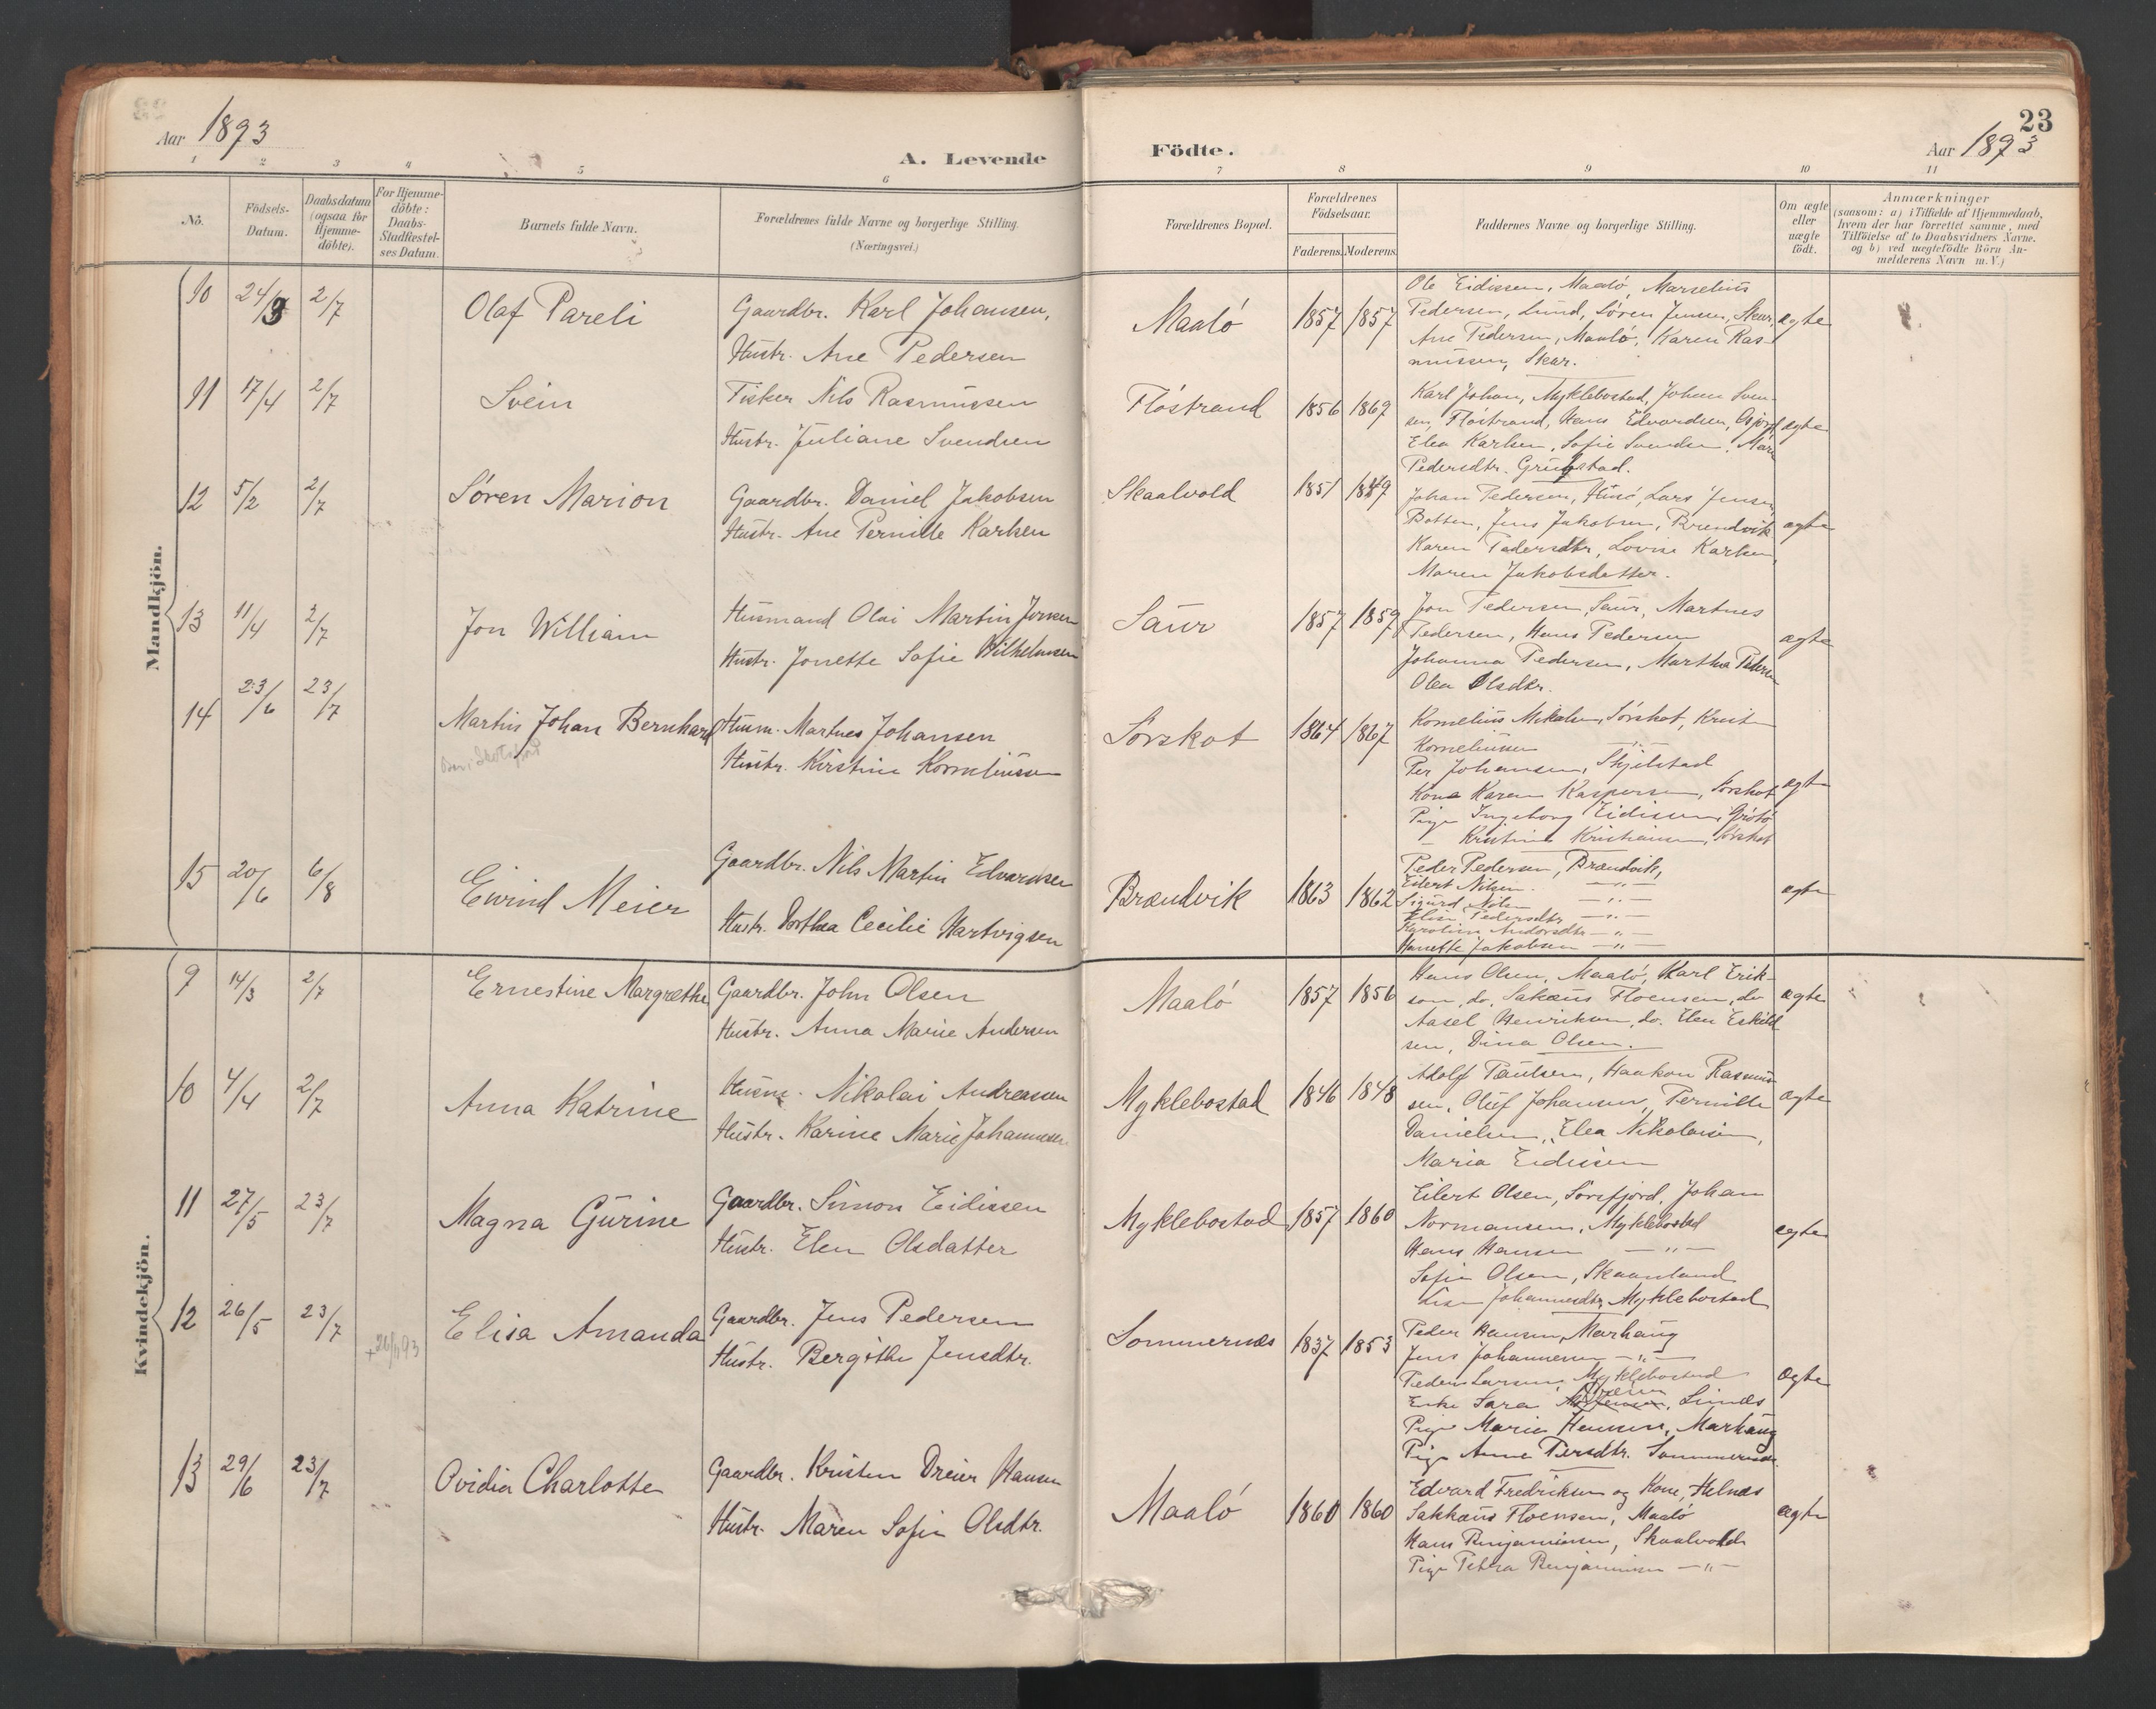 Aar 1893
A. Levende
Födte.
23
Aar 1893
1 2 3 4 5 6 7 8 9 10 11
Nö.
Födsels-Datum.
Daabsdatum (ogsaa for Hjemme-döbte).
For Hjemme-döbte: Daabs-Stadfæstel-ses Datum.
Barnets fulde Navn.
Forældrenes fulde Navne og borgerlige Stilling. (Næringsvei.)
Forældrenes Bopæl.
Forældrenes Födselsaar.
Faderens. Moderens.
Faddernes Navne og borgerlige Stilling.
Om ægte eller uægte födt.
Anmærkninger
(saasom: a) i Tilfælde af Hjemmedaab,
hvem der har forrettet samme, med
Tilföielse af to Daabsvidners Navne.
og b) ved uægtefödte Börn An-
melderens Navn m. V.)
Mandkjön.
10 24/3 2/7 Olaf Pareli
Gaardbr. Karl Johansen,
Hustr. Ane Pedersen
Maalö 1857 1857
Ole Eidissen, Maalö, Marselius
Pedersen, Lund, Sören Jensen, Skar,
Ane Pedersen, Maalö, Karen Ras-
mussen, Skar.
ægte
11 17/4 2/7 Svein
Fisker Nils Rasmussen
Hustr. Juliane Svendsen
Flöstrand 1856 1869
Karl Johan, Myklebostad, Johan Sven-
sen, Flöstrand, Hans Edvardsen,
Elea Karlsen, Sofie Svendsen,
Pedersdtr. Grindstad.
ægte
12 5/2 2/7 Sören Marion
Gaardbr. Daniel Jakobsen
Hustr. Ane Pernille Karlsen
Skaalvold 1851 1849
Johan Pedersen, Lars Jensen,
Botten, Jens Jakobsen, Brændvik
Karen Pedersdtr, Lovise Karlsen,
Maren Jakobsdatter.
ægte
13 11/4 2/7 Jon William
Husmand Olai Martin Jensen
Hustr. Jonette Sofie Wilhelmsen
Saur 1857 1859
Jon Pedersen, Saur, Martnes
Pedersen, Hans Pedersen
Johanna Pedersen, Martha Pedersen
Olea Olsdtr.
ægte
14 23/6 23/7 Martin Johan Bernhard
Husm. Martnes Johansen
Hustr. Kirstine Korneliussen
Sörskot 1864 1867
Kornelius Mikalsen, Sörskot, Kristen
Korneliussen —"—
Per Johansen, Skjelstad
Kone Karen Kaspersen, Sörskot
Pige Ingeborg Eidissen, Grötö
— Kristine Kristiansen, Sörskot
ægte
15 20/6 6/8 Eivind Meier
Gaardbr. Nils Martin Edvardsen
Hustr. Dorthea Cecilie Hartvigsen
Brændvik 1863 1862
Peder Pedersen, Brændvik,
Eilert Nilsen. —"—
Sigurd Nilsen —"—
Elise Pedersdtr —"—
Karoline Andersdtr —"—
Hanefte Jakobsen —"—
ægte
Kvindekjön.
9 14/3 2/7 Ernestine Margrethe
Gaardbr. John Olsen
Hustr. Anna Marie Andersen
Maalö 1857 1856
Hans Olsen, Maalö, Karl Erik-
son, do, Sakæus Floensen, do
Aasel Henriksen, do. Elen Eskild
sen, Dina Olsen.
ægte
10 4/4 2/7 Anna Katrine
Husm. Nikolai Andreassen
Hustr. Karine Marie Johannesen
Myklebostad 1846 1848
Adolf Paulsen, Haakon Rasmus-
sen, Oluf Johansen, Pernille
Danielsen, Elea Nikolaisen,
Maria Eidissen
ægte
11 27/5 23/7 Magna Gurine
Gaardbr. Simon Eidissen
Hustr. Elen Olsdatter
Myklebostad 1857 1860
Eilert Olsen, Sörfjord, Johan
Normansen, Myklebostad
Hans Hansen —"—
Sofie Olsen, Skaanland
Lise Johannesdtr, Myklebostad
ægte
12 26/5 23/7 Elisa Amanda
Gaardbr. Jens Pedersen
Hustr. Bergithe Jensdtr.
Sommernæs 1837 1853
Peder Hansen, Marhaug
Jens Johannesen —"—
Peder Larsen, Myklebostad
Enke Sara, Lunds
Pige Marie Hansen, Marhaug
Pige Anne Persdtr. Sommernæs.
ægte
13 29/6 23/7 Ovidia Charlotte
Gaardbr. Kristen Dreier Hansen
Hustr. Maren Sofie Olsdtr.
Maalö 1860 1860
Edvard Fredriksen og Kone, Helnæs
Sakkæus Floensen, Maalö
Hans Benjaminsen, Skaalvold
Pige Petra Benjaminsen —"—
ægte